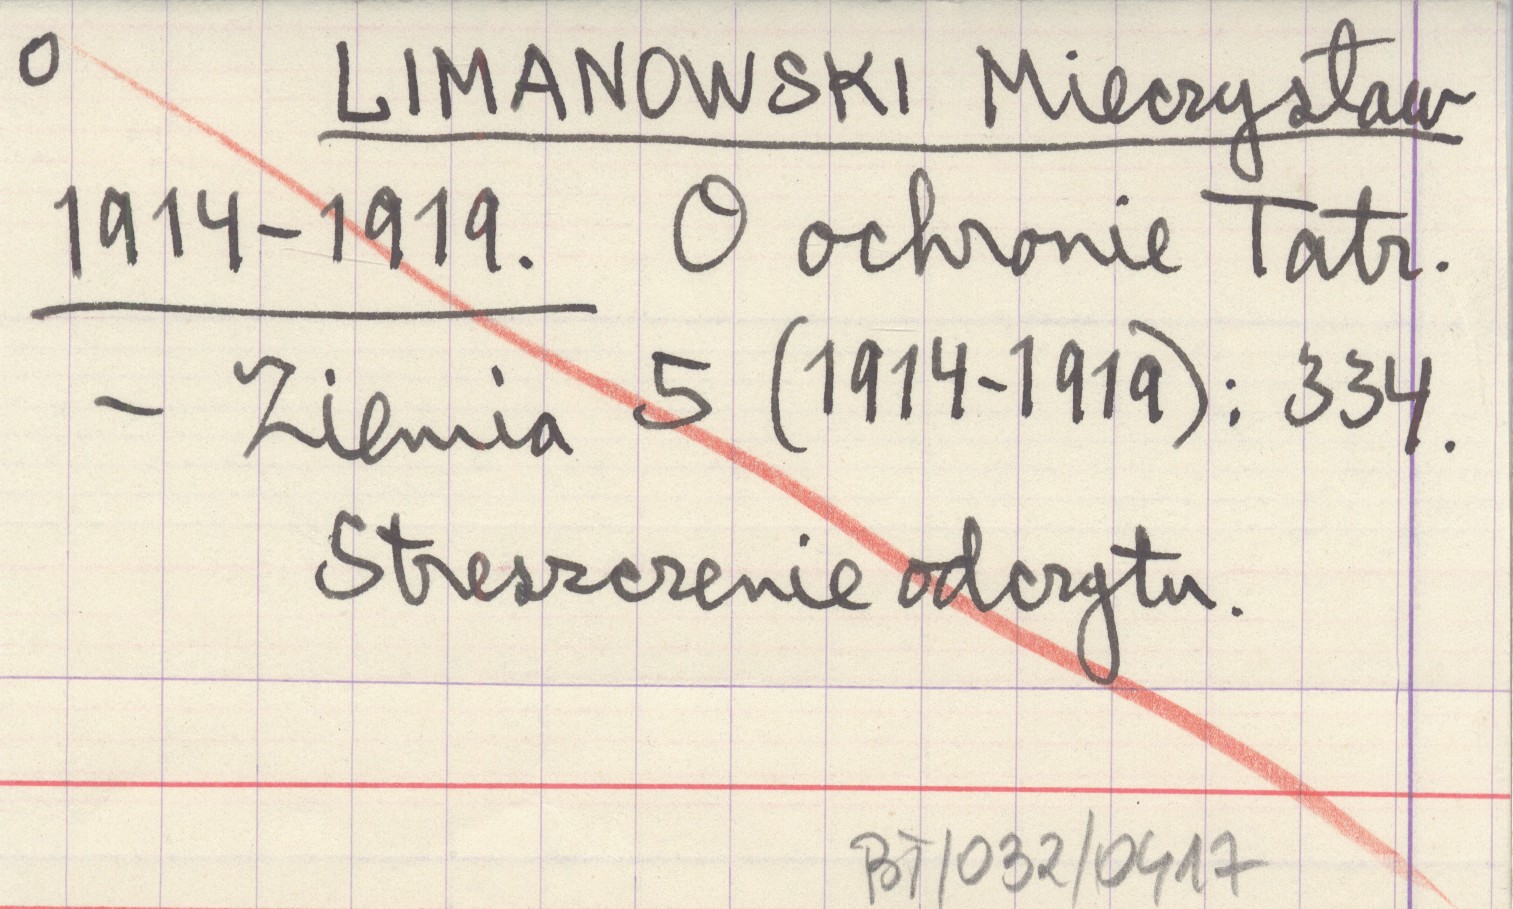 O LIMANOWSKI Mieczysław
1914-1919. O ochronie Tatr.
- Ziemia 5 (1914-1919): 334.
Streszczenie odczytu.
BT/032/0417